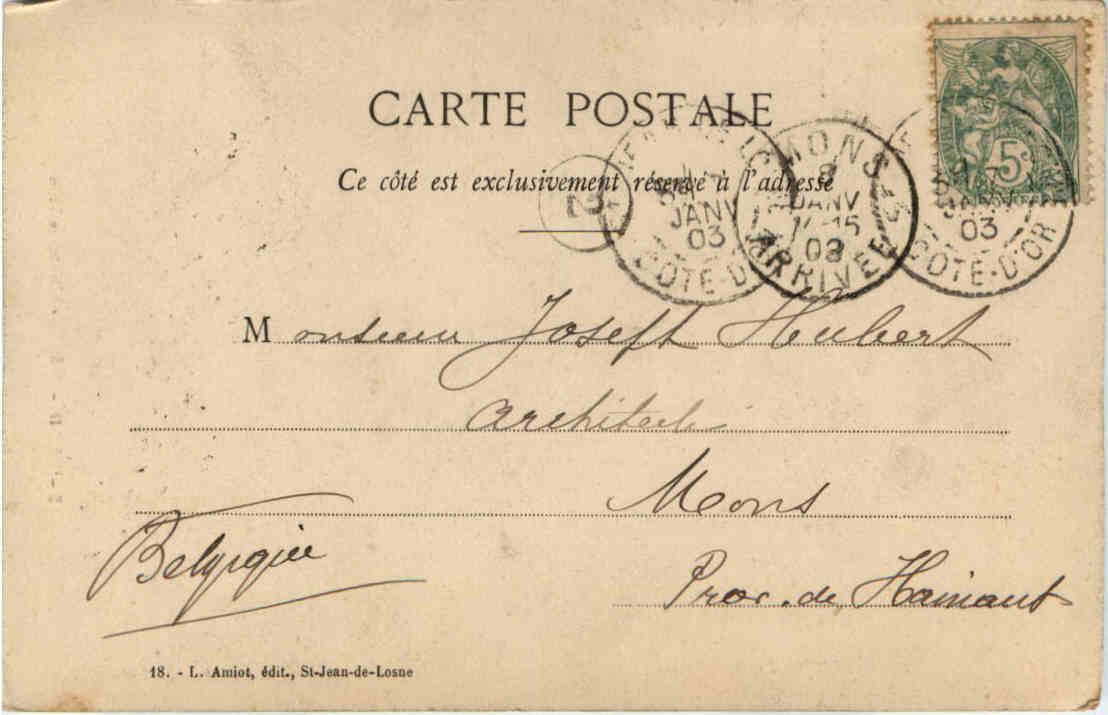 CARTE POSTALE
Ce côté est exclusivement réservé à l'adresse
5c
2
JANV
03
CÔTE-D
MONS
8
JANV
03
ARRIVÉE
JANV
03
CÔTE-D'OR
Monsieur Joseph Hubert
architecte
Mons
Belgique
Prov. de Hainaut
18. - L. Amiot, édit., St-Jean-de-Losne